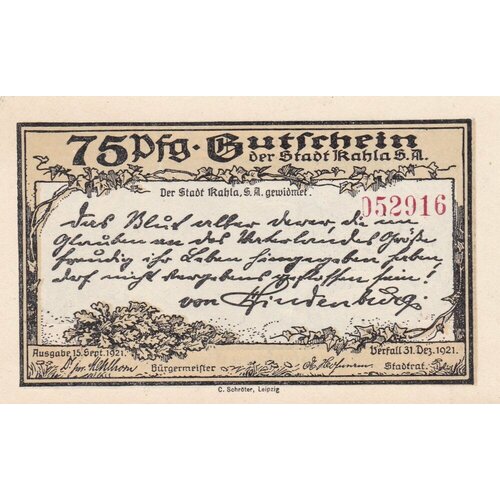 75 Pfg. Gutschein
der Stadt Kahla S.A.
Der Stadt Kahla, S.A. gewidmet.
052916
Das Blut aller derer die im
Glauben an des Vaterlandes Größe
freudig ihr Leben hingegeben haben
darf nicht vergebens geflossen sein!
von Hindenburg.
Ausgabe 15. Sept. 1921.
Verfall 31. Dez. 1921.
Bürgermeister
Stadtrat.
C. Schröter, Leipzig